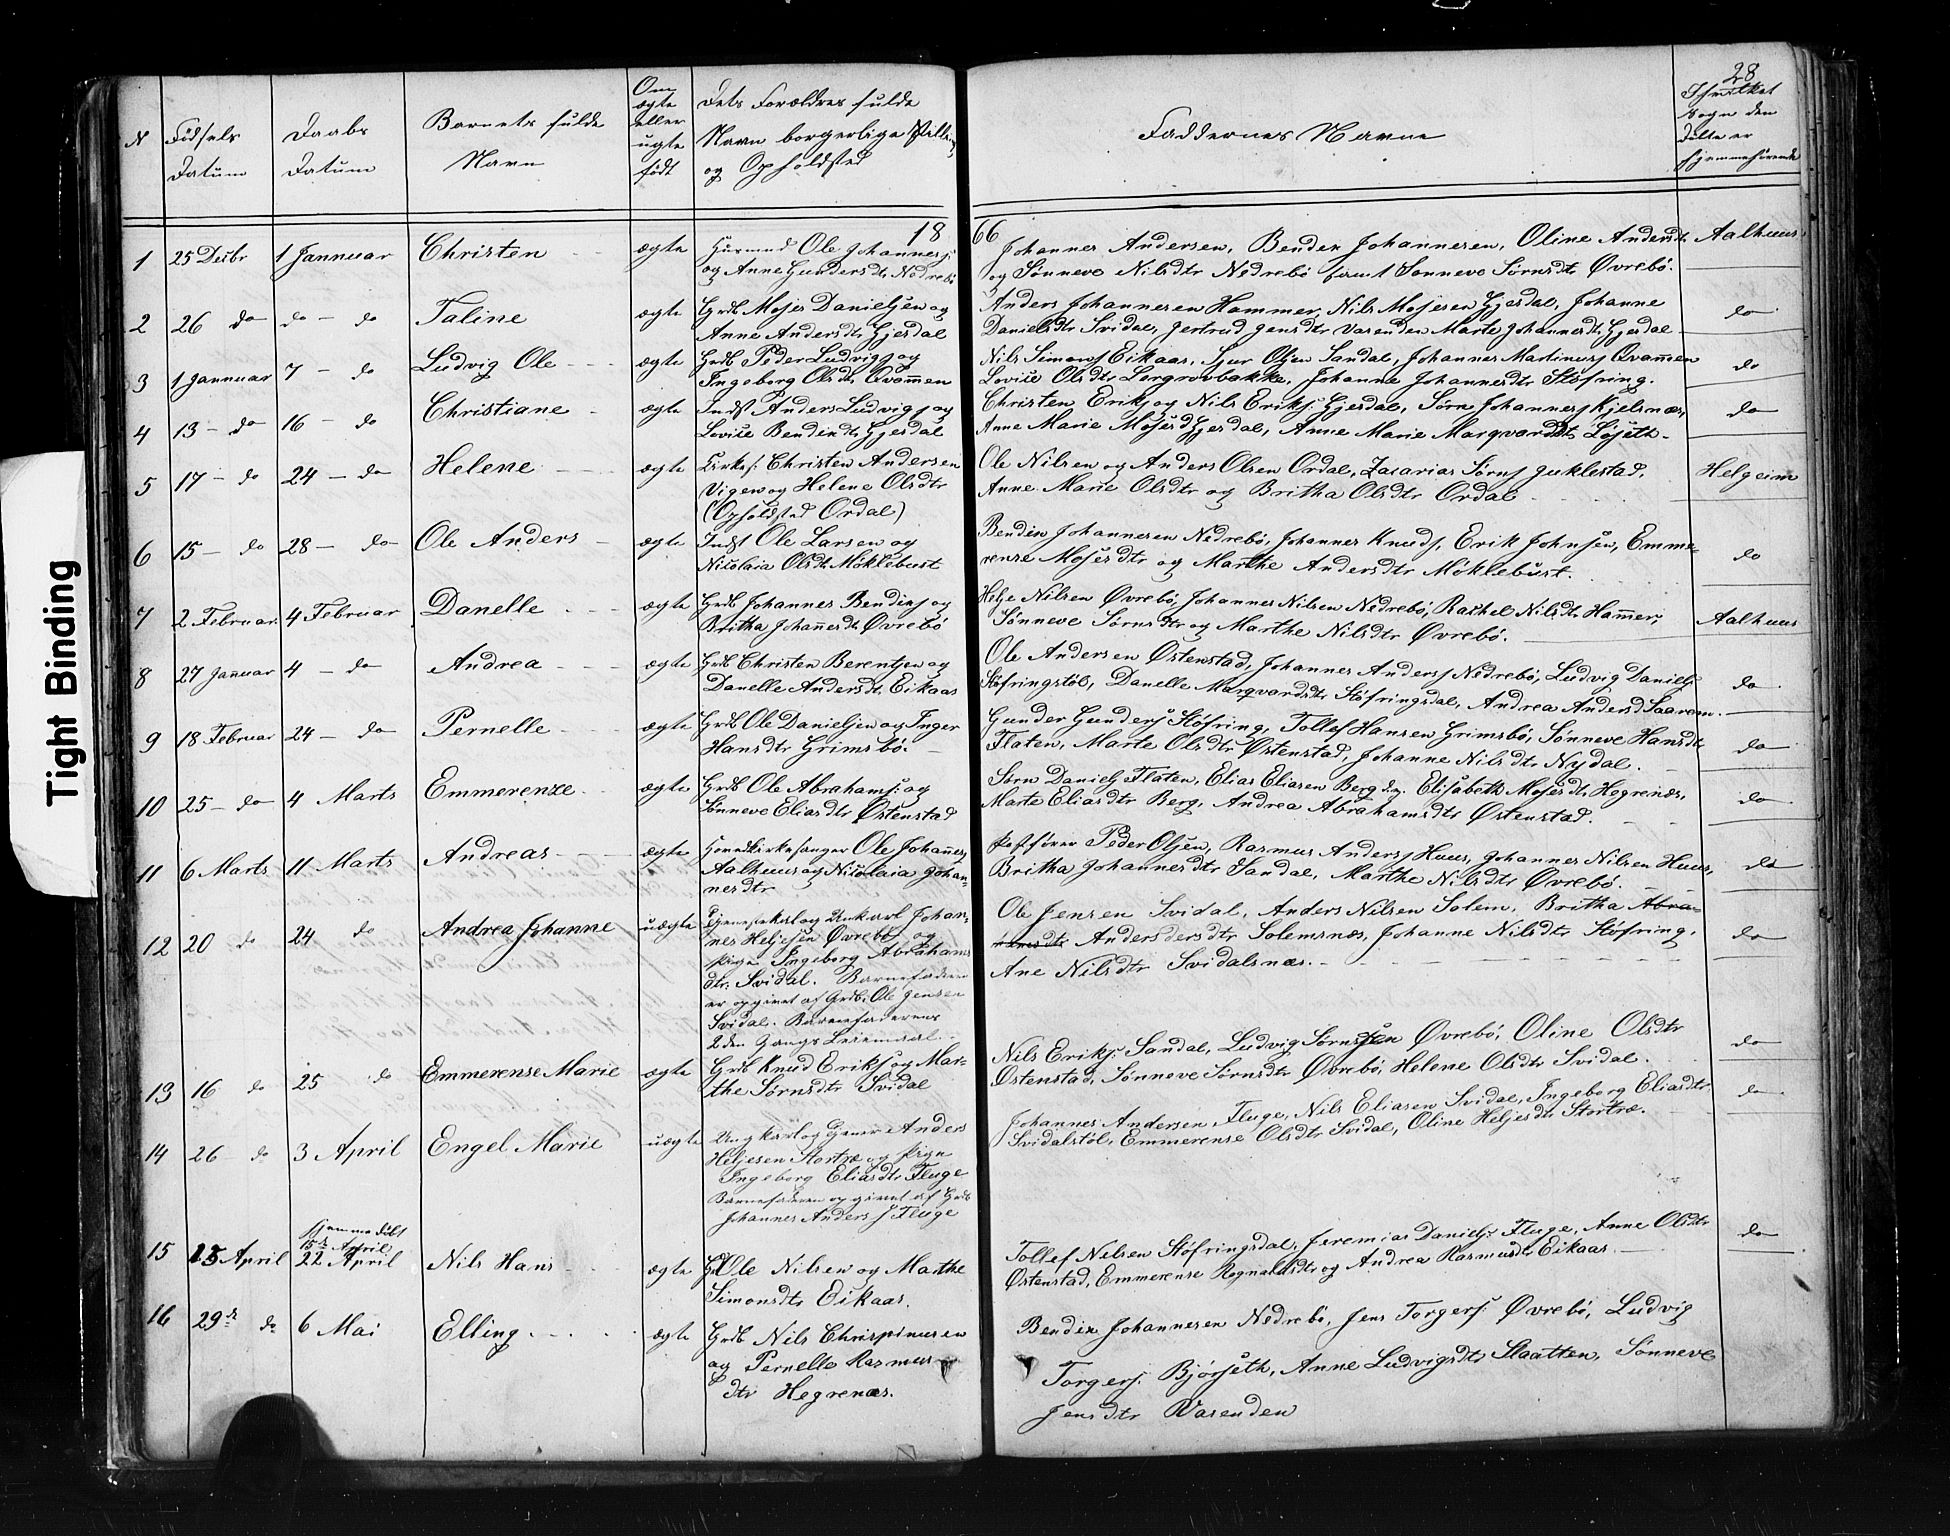 Tight Binding
28
N
Fødsels Datum
Daabs Datum
Barnets fulde Navn
Om ægte eller uægte født
Dets Forældres fulde Navn borgerlige Stilling og Opholdsted
Faddernes Navne
I hvilket Sogn den Døbte er hjemmehørende
18 66
1 25 Decbr 1 Jannuar Christen ægte Husmd Ole Johannesj:
og Anne Gundersdtr Nedrebø
Johannes Andersen, Bendix Johannesen, Oline Andersdtr Aalhuus
og Sønneve Nilsdtr Nedrebø samt Sønneve Sørnsdtr Øvrebø.
2 26 do do - do Taline ægte Grdb Moses Danielsen og
Anne Andersdtr Gjesdal
Anders Johannesen Hammer, Nils Mosesen Gjesdal, Johanne do
Danielsdtr Svidal, Jertrud Jensdtr Varenden Marte Johannesdtr Gjesdal
3 1 Jannuar 7 - do Ludvig Ole ægte Grdb Peder Ludvigsj og
Ingeborg Olsdtr Qvammen
Nils Simonsj Eikaas, Sjur Olsen Sandal, Johannes Martinusj Qvammen do
Lovise Olsdtr Lergrovbakke, Johanne Johannesdtr Støfring.
4 13 - do 16 - do Christiane ægte Indst Anders Ludvigsj og
Lovise Bendixdtr Gjesdal
Christen Eriksj og Nils Eriksj. Gjesdal, Sørn Johannesj Kjelsnæs, do
Anne Marie Mosesd Gjesdal, Anne Marie Marqvardsdtr Løseth.
5 17 - do 24 - do Helene ægte Kirkes: Christen Andersen
Vigen og Helene Olsdtr
(Opholdsted Ordal)
Ole Nilsen og Anders Olsen Ordal, Zacarias Sørnsj Juklestad, Helgeim
Anne Marie Olsdtr og Britha Olsdtr Ordal
6 15 - do 28 - do Ole Anders ægte Indst Ole Larsen og
Nicolaia Olsdtr Møklebust
Bendix Johannesen Nedrebø, Johannes Knudsj, Erik Johnsen, Emme-
rense Mosesdtr og Marthe Andersdtr Møklebust. do
7 2 Februar 4 Februar Danelle ægte Grdb Johannes Bendixsj og
Britha Johannesdtr Øvrebø
Helje Nilsen Øvrebø, Johannes Nilsen Nedrebø, Rachel Nilsdtr Hammer,
Sønneve Sørnsdtr og Marthe Nilsdtr Øvrebø. Aalhuus
8 27 Januar 4 - do Andrea ægte Grdb Christen Berentsen og
Danelle Andersdtr Eikaas
Ole Andersen Østenstad, Johannes Andersj Nedrebø, Ludvig Danielsj
Støfringstøl, Danelle Marqvardsdtr Støfringsdal, Andrea Andersd Saarem. do
9 18 Februar 24 - do Pernelle ægte Grdb Ole Danielsen og Inger
Hansdtr Grimsbø.
Gunder Gundersj Støfring, Tollef Hansen Grimsbø, Sønneve Hansdtr
Flaten, Marte Olsdtr Østenstad, Johanne Nilsdtr Nydal. do
10 25 - do 4 Marts Emmerenze ægte Grdb Ole Abrahamsj: og
Sønneve Eliasdtr Østenstad
Sørn Danielsj Flaten, Elias Eliasen Berg Elisabeth Mosesdtr Hegrenæs,
Marte Eliasdtr Berg, Andrea Abrahamsdtr Østenstad. do
11 6 Marts 11 Marts Andreas ægte Hovedkirkesanger Ole Johannesj
Aalhuus og Nicolaia Johan-
nesdtr
Postfører Peder Olsen, Rasmus Andersj Huus, Johannes Nilsen Huus,
Britha Johannesdtr Sandal, Marthe Nilsdtr Øvrebø. do
12 20 do 24 do Andrea Johanne uægte Tjenestekarl og Unkarl Johan-
nes Heljesen Øvrebø, og
Pige Ingeborg Abrahams
dtr. Svidal. Barnefaderen
er opgivet af Grdb. Ole Jensen
Svidal. Barnefaderens
2den Gangs Leiermaal.
Ole Jensen Svidal, Anders Nilsen Solem, Britha Abra-
hamsdtr Andersdersdtr Solemsnæs, Johanne Nilsdtr Støfring, do
Ane Nilsdtr Svidalsnæs.
13 16 do 25 do Emmerense Marie ægte Grdb Knud Eriksj og Mar-
the Sørnsdtr Svidal
Nils Eriksj. Sandal, Ludvig Sørnsen Øvrebø, Oline Olsdtr do
Østenstad, Sønneve Sørnsdtr Øvrebø, Helene Olsdtr Svidal.
14 26 - do 3 April Engel Marie uægte Ungkarl og Tjener Anders
Heljesen Stortræ og Pige
Ingeborg Eliasdtr Fluge
Barnefaderen opgivet af Grdb
Johannes Andersj Fluge
Johannes Andersen Fluge, Nils Eliasen Svidal, Ingeborg Eliasdtr do
Svidalstøl, Emmerense Olsdtr Svidal, Oline Heljesdtr Stortræ.
15 15 April hjemmedøbt 15de April 22 April Nils Hans ægte Grdb Ole Nilsen og Marthe
Simonsdtr Eikaas.
Tollef Nelsen Støfringsdal, Jeremias Danielsj. Fluge, Anne Olsdtr do
Østenstad, Emmerense Rognaldsdtr og Andrea Rasmusdtr Eikaas.
16 29de do 6 Mai Elling ægte Grdb Nils Chrispinusen
og Pernelle Rasmus-
dtr Hegrenæs.
Bendix Johannesen Nedrebø, Jens Torgersj. Øvrebø, Ludvig
Torgersj. Bjørseth, Anne Ludvigsdtr Slaatten, Sønneve
Jensdtr Varenden